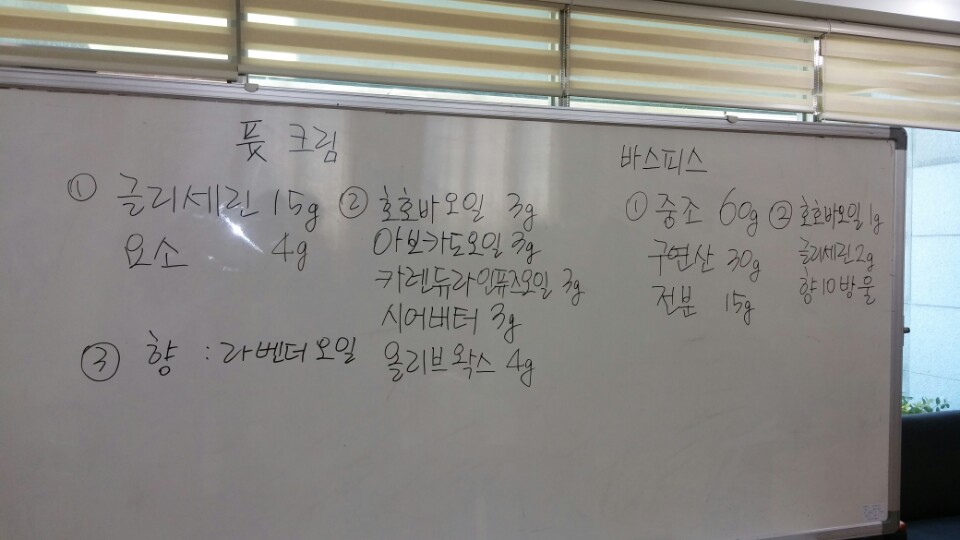 풋 크림
① 글리세린 15g
요소 4g
② 호호바오일 3g
아보카도오일 3g
카렌듀라인퓨즈오일 3g
시어버터 3g
올리브왁스 4g
③ 향 : 라벤더오일
바스피스
① 중조 60g
구연산 30g
전분 15g
② 호호바오일 1g
글리세린 2g
향 10방울